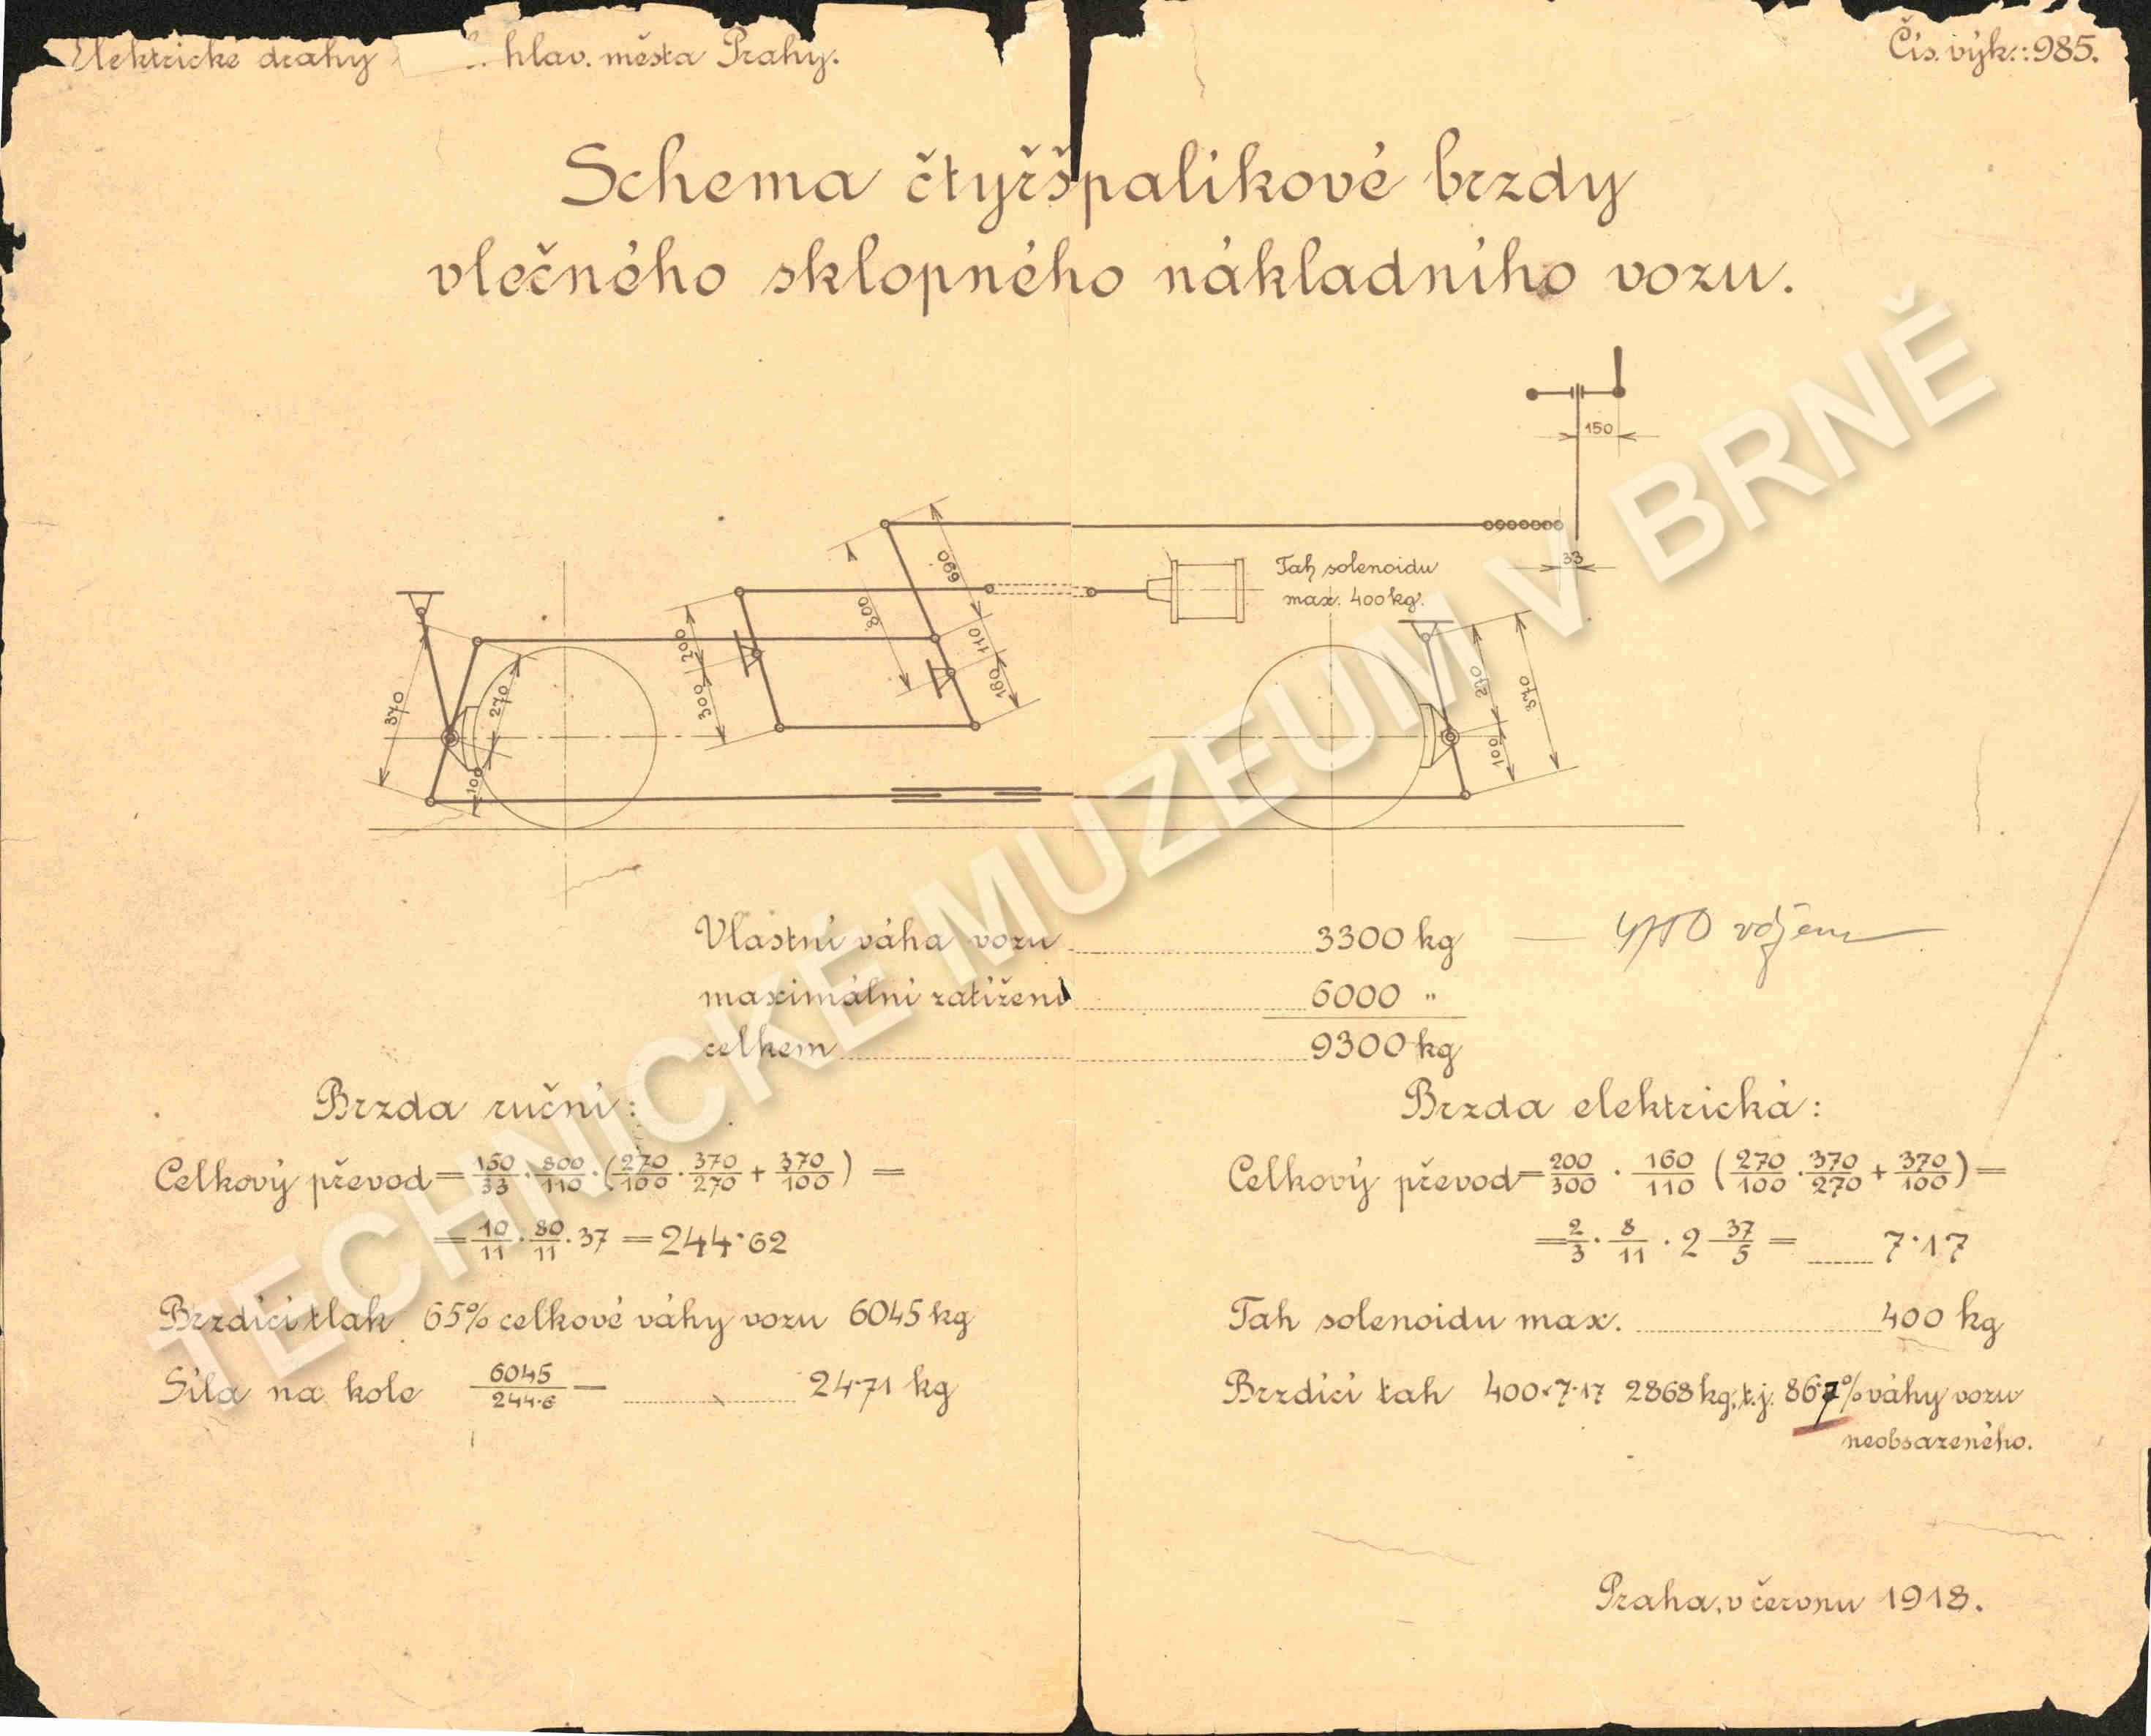 Elektrické dráhy hlav. města Prahy.
Čís. výk.: 985.
Schema čtyřšpalíkové brzdy
vlečného sklopného nákladního vozu.
150
33
Tah solenoidu
max. 400 kg.
690
800
110
160
200
300
370
270
100
270
370
100
Vlastní váha vozu 3300 kg —
maximální zatížení 6000 "
celkem 9300 kg
Brzda ruční:
Celkový převod = 150/33 · 800/110 · (270/100 · 370/270 + 370/100) =
= 10/11 · 80/11 · 37 = 244·62
Brzdící tlak 65% celkové váhy vozu 6045 kg
Síla na kole 6045/244·6 — 24·71 kg
Brzda elektrická:
Celkový převod = 200/300 · 160/110 (270/100 · 370/270 + 370/100) =
= 2/3 · 8/11 · 2 37/5 = 7·17
Tah solenoidu max. 400 kg
Brzdící tah 400·7·17 2868 kg, t.j. 86·7% váhy vozu
neobsazeného.
Praha, v červnu 1918.
TECHNICKÉ MUZEUM V BRNĚ